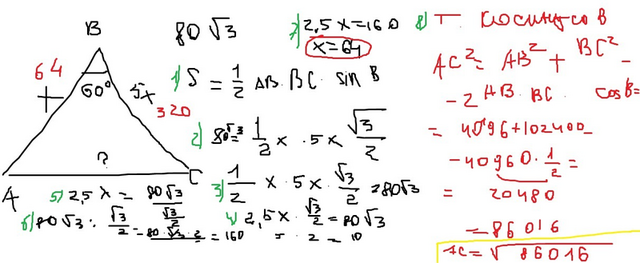 B
80 √3
64
60°
5x
320
?
A
C
1) S = 1/2 AB. BC. sin B
2) 80√3 = 1/2 x . 5x √3/2
3) 1/2 x . 5x . √3/2 = 80√3
4) 2,5x . √3/2 = 80 √3
5) 2,5 x = 80√3 / √3/2
6) 80 √3 : √3/2 = 80 . √3 . 2 = 160 = . 2 = 10
7) 2,5 x = 160
x = 64
8) Т. косинусов
AC² = AB² + BC² -
- 2 AB. BC. cos B =
= 4096 + 102400 -
- 40960 . 1/2 =
= 20480
= 86016
AC = √86016